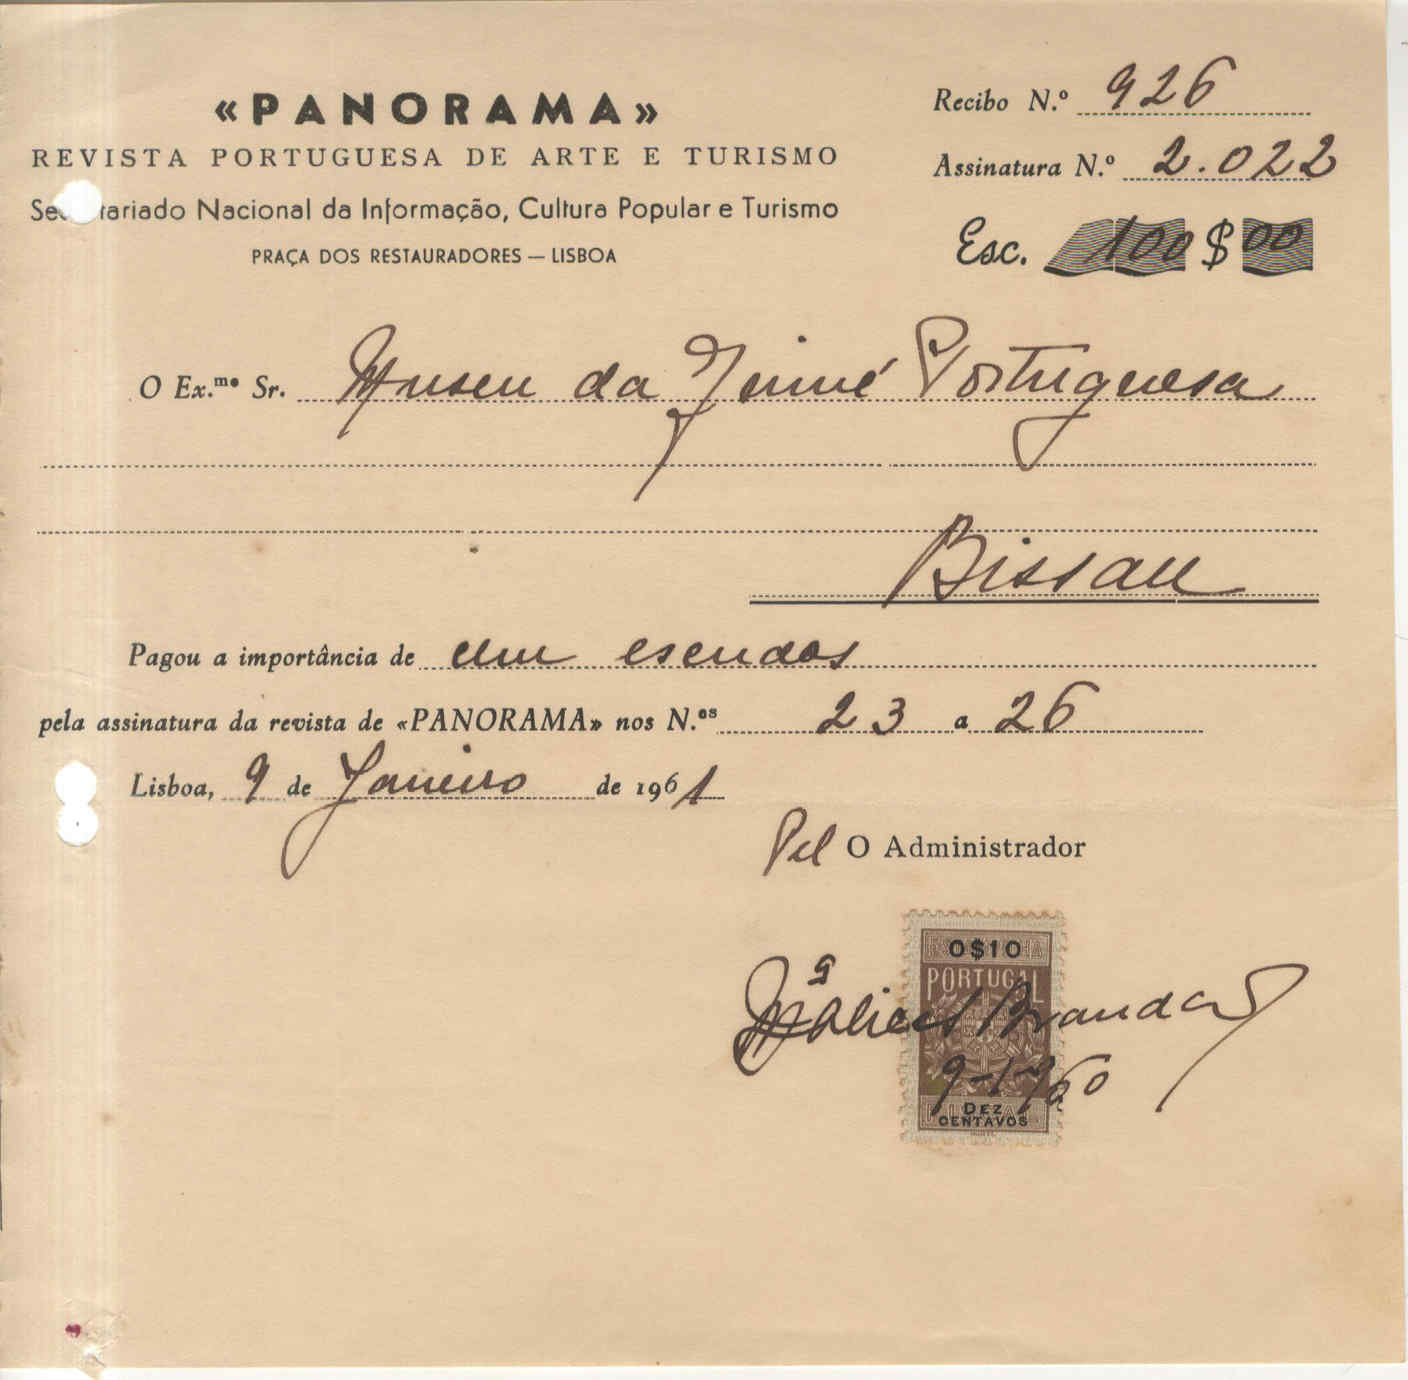 «PANORAMA»
REVISTA PORTUGUESA DE ARTE E TURISMO
Secretariado Nacional da Informação, Cultura Popular e Turismo
PRAÇA DOS RESTAURADORES — LISBOA
Recibo N.º 926
Assinatura N.º 2.022
Esc. 100$00
O Ex.mo Sr. Museu da Guiné Portuguesa
Bissau
Pagou a importância de cem escudos
pela assinatura da revista de «PANORAMA» nos N.os 23 a 26
Lisboa, 9 de Janeiro de 1961
Pel O Administrador
0$10
PORTUGAL
Mª Brandão
9-1-960
DEZ
CENTAVOS